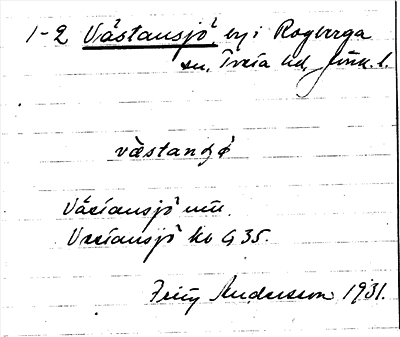 1-2 Västansjö, by i Rogberga
sn, Tveta hd, Jönk. l.
væstanʃø
Västansjö
Västansjö kb G 35.
Fritz Andersson 1931.